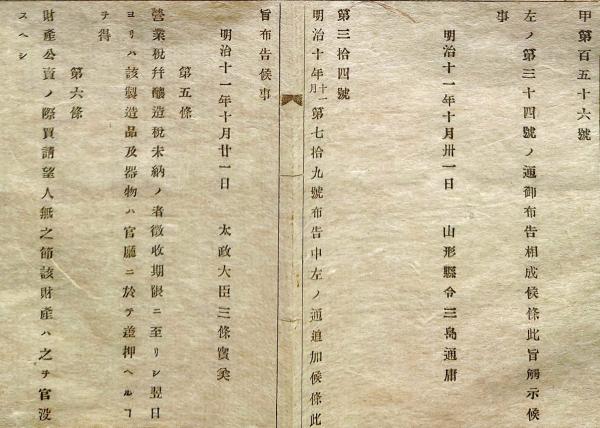 甲第百五十六號
左ノ第三十四號ノ通御布告相成候條此旨觸示候
事
明治十一年十月卅一日　山形縣令三島通庸
第三拾四號
明治十年十一月第七拾九號布告中左ノ通追加候條此
旨布告候事
明治十一年十月廿一日　太政大臣三條實美
第五條
營業稅幷釀造稅未納ノ者徵收期限ニ至リシ翌日
ヨリハ該製造品及器物ハ官廳ニ於テ差押ヘルヿ
ヲ得
第六條
財產公賣ノ際買請望人無之節該財產ハ之ヲ官沒
スヘシ